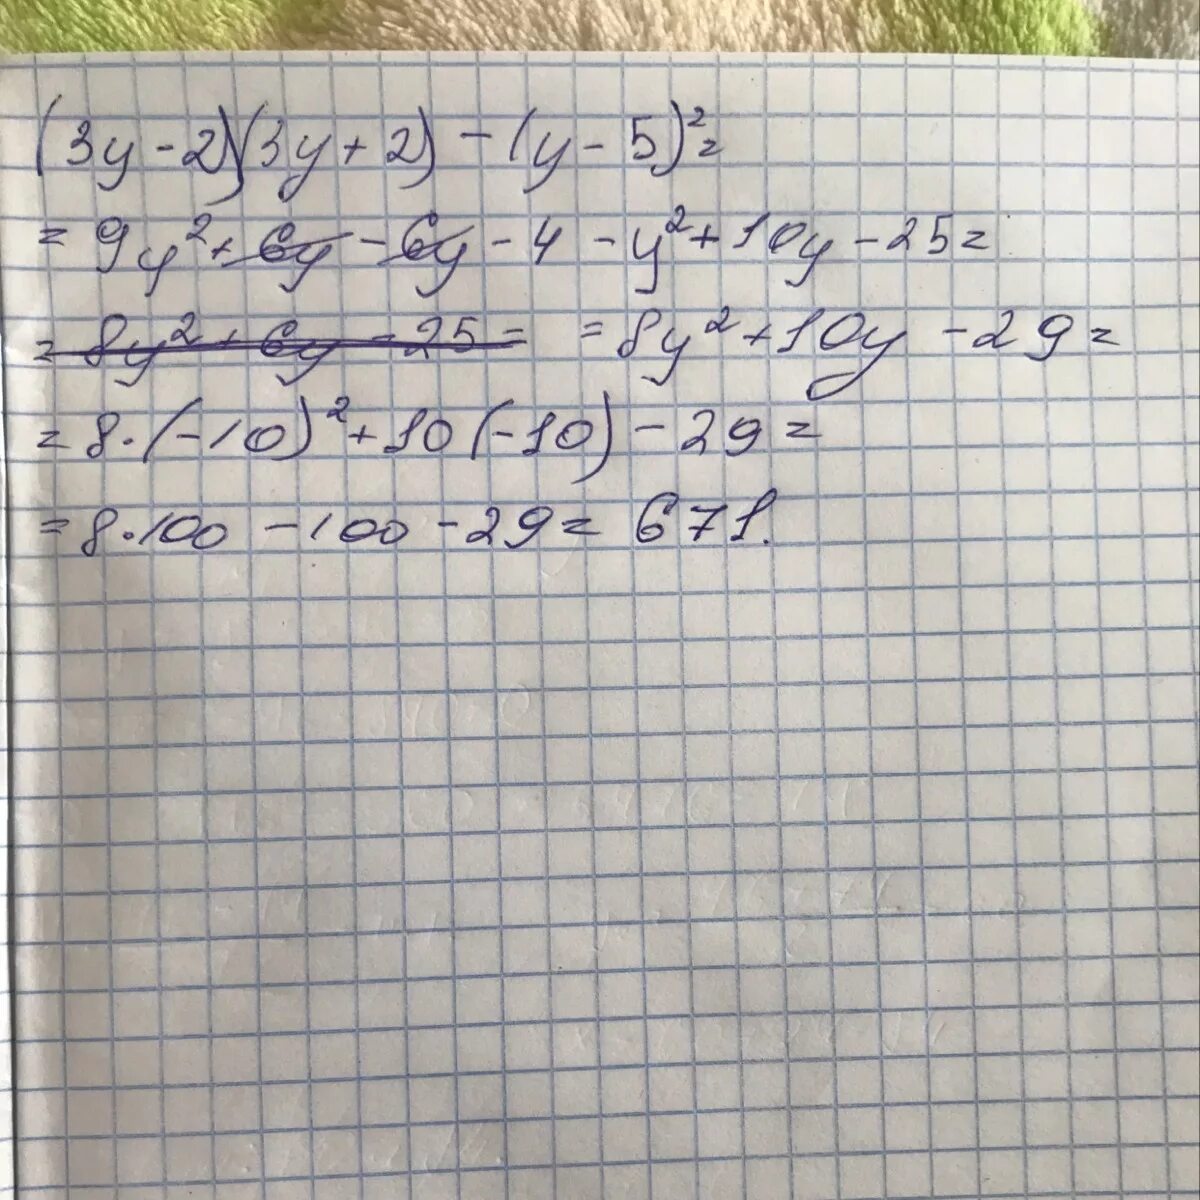 (3y-2)(3y+2)-(y-5)²=
= 9y²+6y-6y-4-y²+10y-25=
= 8y²+6y-25= =8y²+10y-29=
=8·(-10)²+10(-10)-29=
=8·100-100-29= 671.